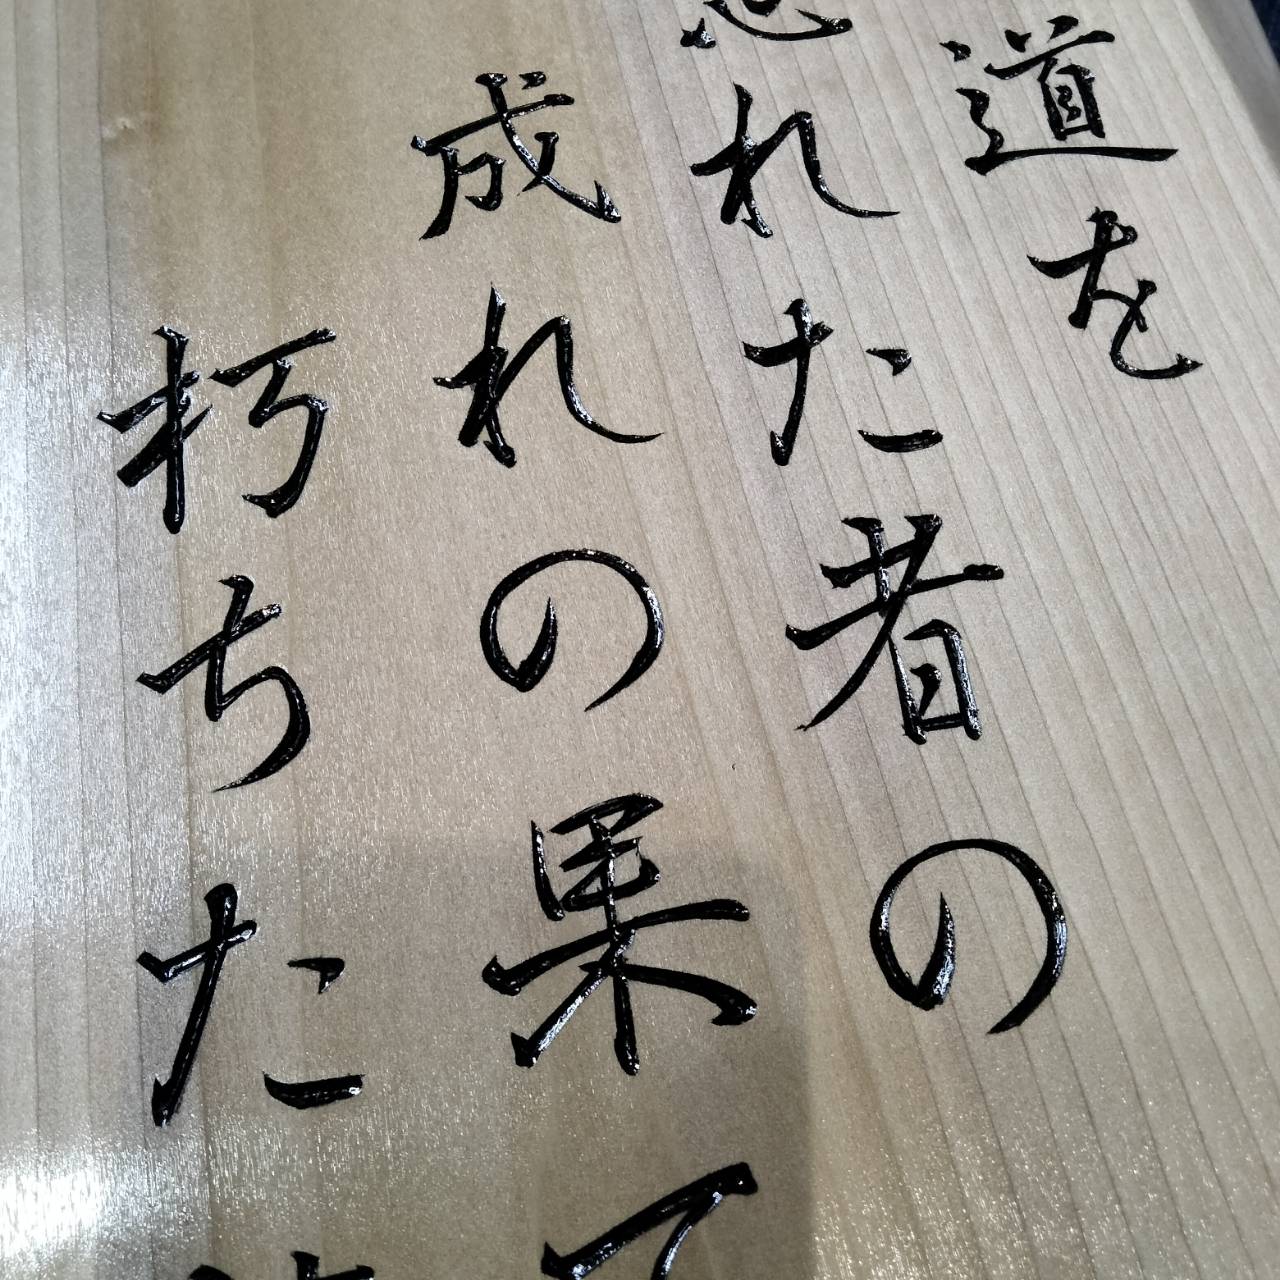 道を
忘れた者の
成れの果て
朽ちた